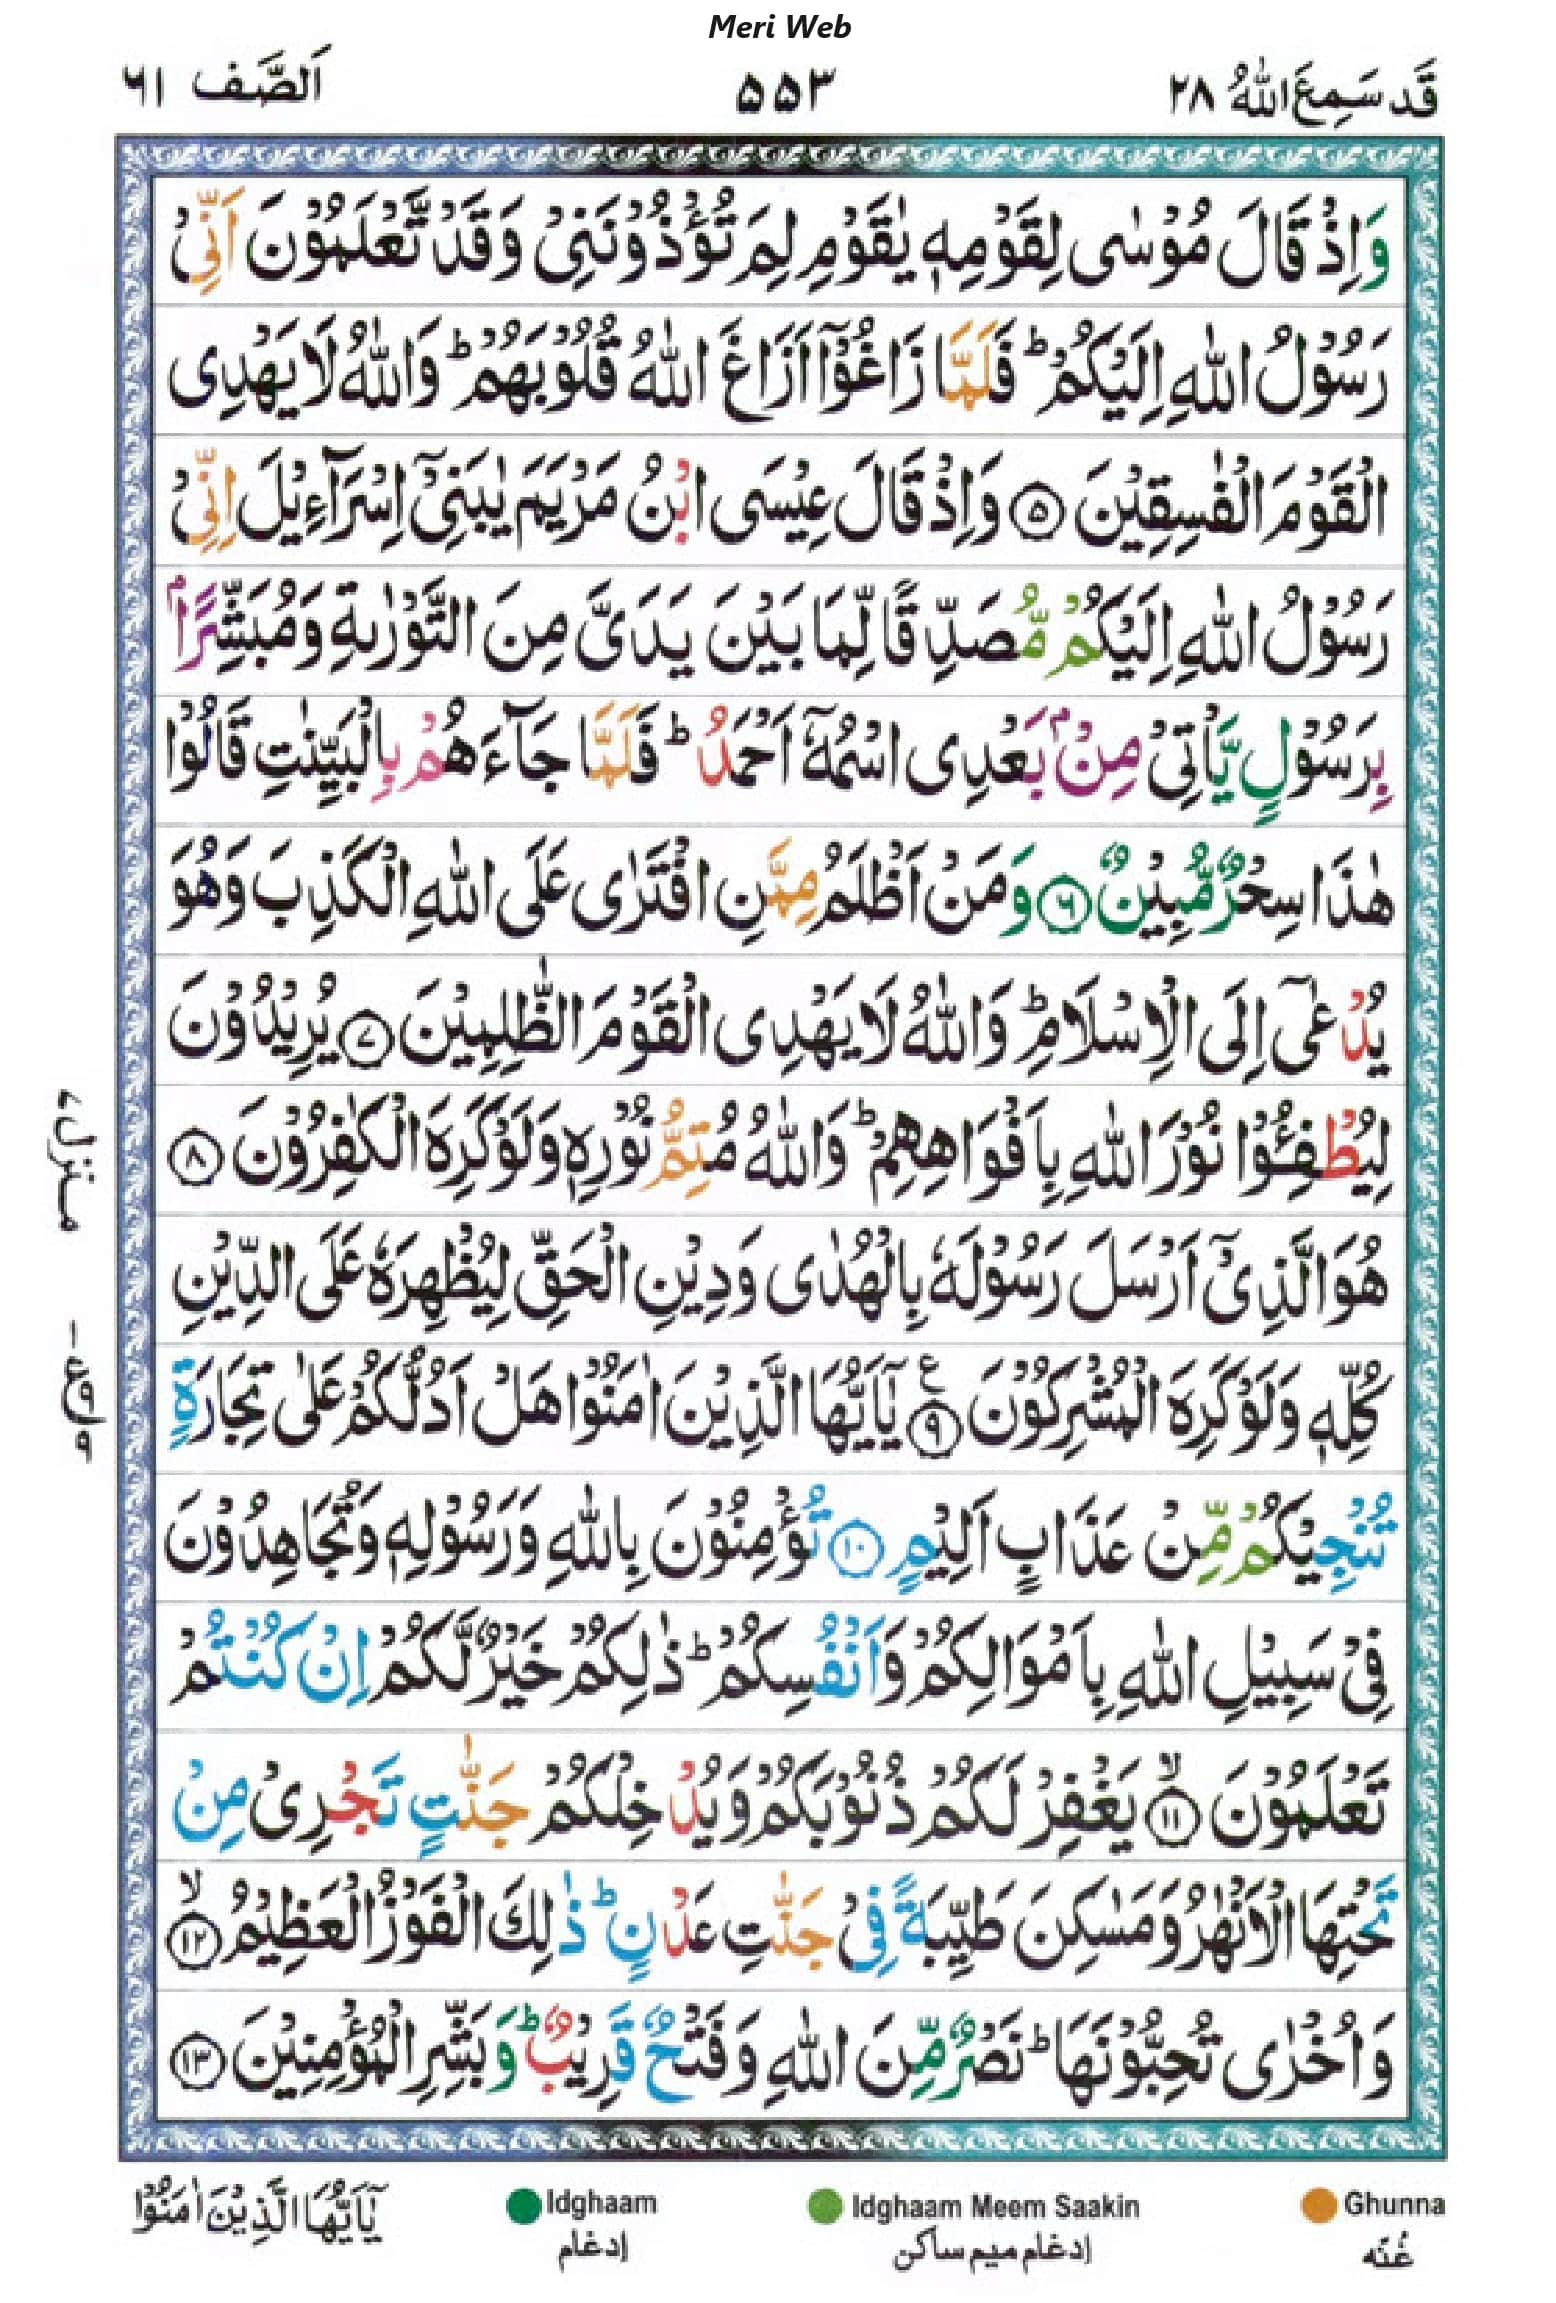 Meri Web
قَدسَمِعَ اللّٰهُ ٢٨ ۵۵۳ اَلصَّف ٦١
وَاِذْ قَالَ مُوْسٰى لِقَوْمِهٖ يٰقَوْمِ لِمَ تُؤْذُوْنَنِىْ وَقَدْ تَّعْلَمُوْنَ اَنِّىْ
رَسُوْلُ اللّٰهِ اِلَيْكُمْ ؕ فَلَمَّا زَاغُوْۤا اَزَاغَ اللّٰهُ قُلُوْبَهُمْ ؕ وَاللّٰهُ لَا يَهْدِى
الْقَوْمَ الْفٰسِقِيْنَ ۵ وَاِذْ قَالَ عِيْسَى ابْنُ مَرْيَمَ يٰبَنِىْۤ اِسْرَآءِيْلَ اِنِّىْ
رَسُوْلُ اللّٰهِ اِلَيْكُمْ مُّصَدِّقًا لِّمَا بَيْنَ يَدَىَّ مِنَ التَّوْرٰىةِ وَمُبَشِّرًاۢ
بِرَسُوْلٍ يَّاْتِىْ مِنْۢ بَعْدِى اسْمُهٗۤ اَحْمَدُ ؕ فَلَمَّا جَآءَهُمْ بِالْبَيِّنٰتِ قَالُوْا
هٰذَا سِحْرٌ مُّبِيْنٌ ۶ وَمَنْ اَظْلَمُ مِمَّنِ افْتَرٰى عَلَى اللّٰهِ الْكَذِبَ وَهُوَ
يُدْعٰىۤ اِلَى الْاِسْلَامِ ؕ وَاللّٰهُ لَا يَهْدِى الْقَوْمَ الظّٰلِمِيْنَ ۷ يُرِيْدُوْنَ
لِيُطْفِـُٔوْا نُوْرَ اللّٰهِ بِاَفْوَاهِهِمْ ؕ وَاللّٰهُ مُتِمُّ نُوْرِهٖ وَلَوْ كَرِهَ الْكٰفِرُوْنَ ۸
هُوَ الَّذِىْۤ اَرْسَلَ رَسُوْلَهٗ بِالْهُدٰى وَدِيْنِ الْحَقِّ لِيُظْهِرَهٗ عَلَى الدِّيْنِ
كُلِّهٖ وَلَوْ كَرِهَ الْمُشْرِكُوْنَ ۹ ع يٰۤاَيُّهَا الَّذِيْنَ اٰمَنُوْا هَلْ اَدُلُّكُمْ عَلٰى تِجَارَةٍ
تُنْجِيْكُمْ مِّنْ عَذَابٍ اَلِيْمٍ ۱۰ تُؤْمِنُوْنَ بِاللّٰهِ وَرَسُوْلِهٖ وَتُجَاهِدُوْنَ
فِىْ سَبِيْلِ اللّٰهِ بِاَمْوَالِكُمْ وَاَنْفُسِكُمْ ؕ ذٰلِكُمْ خَيْرٌ لَّكُمْ اِنْ كُنْتُمْ
تَعْلَمُوْنَ ۱۱ ۙ يَغْفِرْ لَكُمْ ذُنُوْبَكُمْ وَيُدْخِلْكُمْ جَنّٰتٍ تَجْرِىْ مِنْ
تَحْتِهَا الْاَنْهٰرُ وَمَسٰكِنَ طَيِّبَةً فِىْ جَنّٰتِ عَدْنٍ ؕ ذٰلِكَ الْفَوْزُ الْعَظِيْمُ ۱۲ ۙ
وَاُخْرٰى تُحِبُّوْنَهَا ؕ نَصْرٌ مِّنَ اللّٰهِ وَفَتْحٌ قَرِيْبٌ ؕ وَبَشِّرِ الْمُؤْمِنِيْنَ ۱۳
منزل ۷
Ghunna
غُنّه
Idghaam Meem Saakin
إدغام ميم ساكن
Idghaam
إدغام
يٰۤاَيُّهَا الَّذِيْنَ اٰمَنُوْا